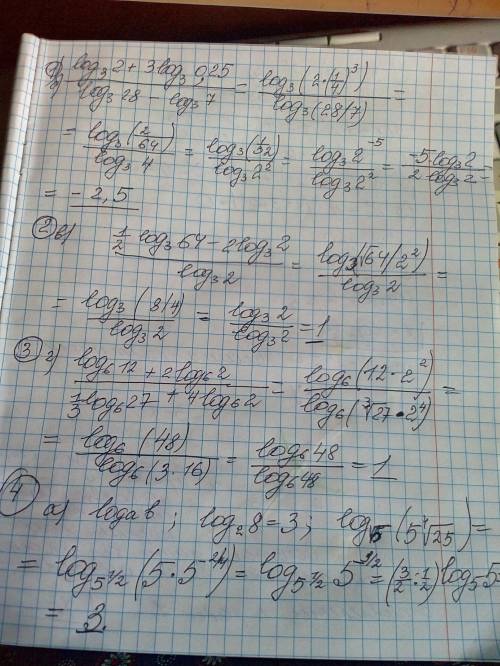 (log₃2 + 3log₃0,25)/(log₃28 − log₃7) = log₃(2·(1/4)³)/log₃(28/7) =
= log₃(2/64)/log₃4 = log₃(1/32)/log₃2² = log₃2⁻⁵/log₃2² = −5·log₃2/2·log₃2 =
= −2,5
② в) (1/2·log₃64 − 2log₃2)/log₃2 = log₃(√64/2²)/log₃2 =
= log₃(8/4)/log₃2 = log₃2/log₃2 = 1
③ г) (log₆12 + 2log₆2)/(1/3log₆27 + 4log₆2) = log₆(12·2²)/log₆(∛27·2⁴) =
= log₆(48)/log₆(3·16) = log₆48/log₆48 = 1
④ а) logab; log₂8=3; log√5(5⁴√25) =
= log₅1/2(5·5²/⁴) = log₅1/2 5³/² = (3/2:1/2)log₅5
= 3.